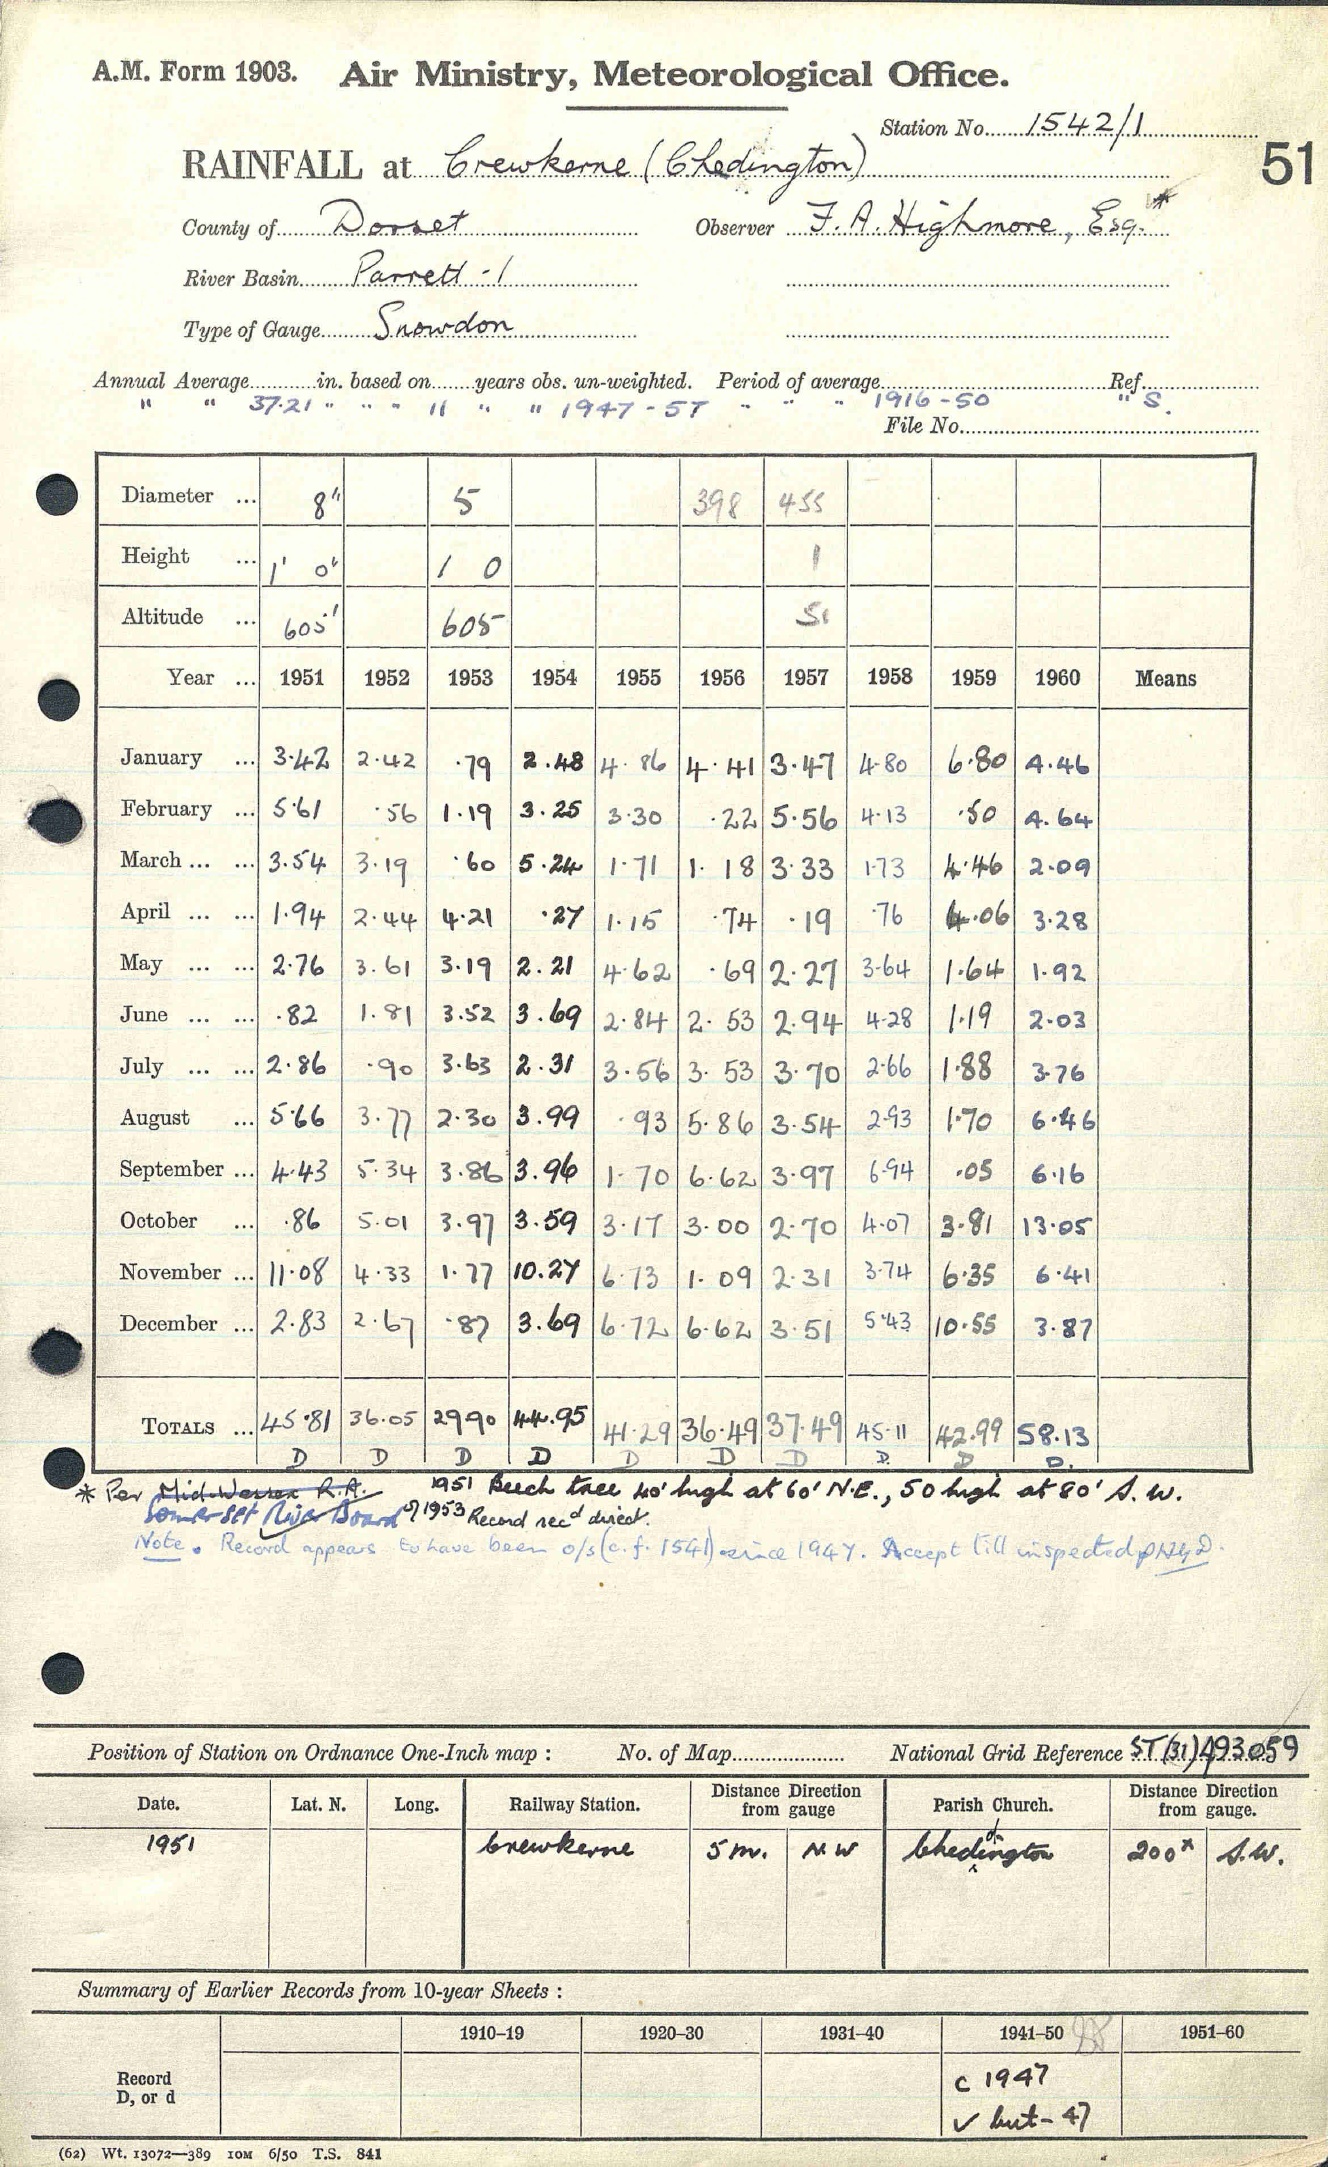 A.M. Form 1903. Air Ministry, Meteorological Office.
Station No. 1542/1
51
RAINFALL at Crewkerne (Chedington)
County of Dorset Observer F. A. Highmore, Esq. *
River Basin Parrett - 1
Type of Gauge Snowdon
Annual Average in. based on years obs. un-weighted. Period of average Ref.
" " 37.21 " " " 11 " " 1947-57 " " " 1916-50 " S.
File No.
Diameter ... 8" 5 398 455
Height ... 1' 0" 1 0 1
Altitude ... 605' 605 51
Year ... 1951 1952 1953 1954 1955 1956 1957 1958 1959 1960 Means
January ... 3.42 2.42 .79 2.48 4.86 4.41 3.47 4.80 6.80 4.46
February ... 5.61 .56 1.19 3.25 3.30 .22 5.56 4.13 .50 4.64
March ... ... 3.54 3.19 .60 5.24 1.71 1.18 3.33 1.73 4.46 2.09
April ... ... 1.94 2.44 4.21 .27 1.15 .74 .19 .76 4.06 3.28
May ... ... 2.76 3.61 3.19 2.21 4.62 .69 2.27 3.64 1.64 1.92
June ... ... .82 1.81 3.52 3.69 2.84 2.53 2.94 4.28 1.19 2.03
July ... ... 2.86 .90 3.63 2.31 3.56 3.53 3.70 2.66 1.88 3.76
August ... 5.66 3.77 2.30 3.99 .93 5.86 3.54 2.93 1.70 6.46
September ... 4.43 5.34 3.86 3.96 1.70 6.62 3.97 6.94 .05 6.16
October ... .86 5.01 3.97 3.59 3.17 3.00 2.70 4.07 3.81 13.05
November ... 11.08 4.33 1.77 10.27 6.73 1.09 2.31 3.74 6.35 6.41
December ... 2.83 2.67 .87 3.69 6.72 6.62 3.51 5.43 10.55 3.87
TOTALS ... 45.81 36.05 29.90 44.95 41.29 36.49 37.49 45.11 42.99 58.13
D D D D D D D D. D D.
* Per Mid-Wessex R.A. 1951 Beech tree 40' high at 60' N.E., 50 high at 80' S.W.
Somerset River Board 1953 Record recd direct.
Note. Record appears to have been o/s (c.f. 1541) since 1947. Accept till inspected
Position of Station on Ordnance One-Inch map : No. of Map National Grid Reference ST (31) 493059
Date. Lat. N. Long. Railway Station. Distance from gauge Direction Parish Church. Distance from gauge. Direction
1951 Crewkerne 5 m. N.W Chedington 200x S.W.
Summary of Earlier Records from 10-year Sheets :
1910–19 1920–30 1931–40 1941–50 1951–60
Record D, or d c 1947
✓ but - 47
(62) Wt. 13072—389 10M 6/50 T.S. 841